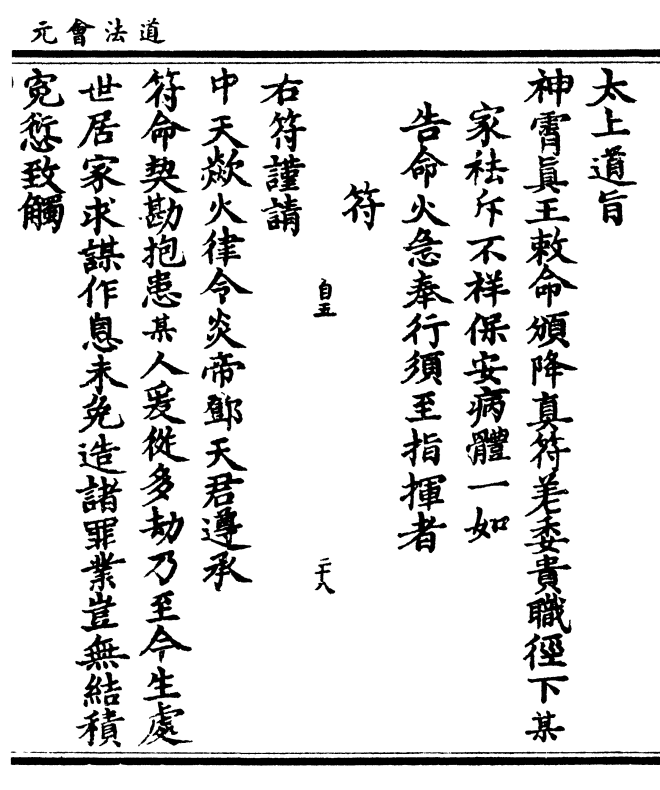 道法會元
太上道旨
神霄眞王敕命頒降真符差委貴職徑下某
家祛斥不祥保安病體一如
告命火急奉行須至指揮者
符
自五
二十八
右符謹請
中天歘火律令炎帝鄧天君遵承
符命契勘抱患某人爰從多劫乃至今生處
世居家求謀作息未免造諸罪業豈無結積
寃愆致觸